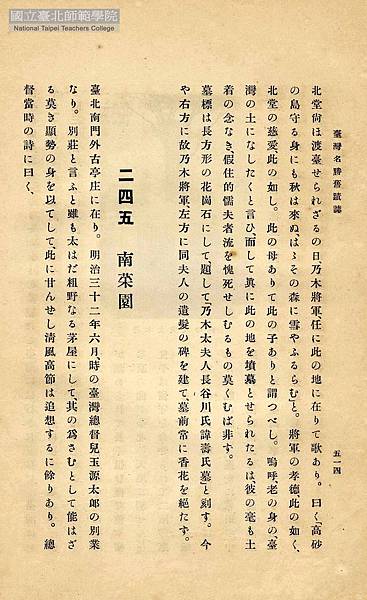 國立臺北師範學院
National Taipei Teachers College
臺灣名勝舊蹟誌
五一四
北堂尙ほ渡臺せられざるの日、乃木將軍任に此の地に在りて歌あり。曰く、「高砂
の島守る身にも秋は來ぬ、はゝその森に雪やふるらむ」と。將軍の孝德此の如く、
北堂の慈愛、此の如し。此の母ありて此の子ありと謂つべし。嗚呼老の身の、臺
灣の土になしたくと言ひ、而して眞に此の地を墳墓とせられたるは、彼の毫も土
着の念なき、假住的懦夫者流を愧死せしむるもの莫くむば非す。
墓標は長方形の花崗石にして題して「乃木太夫人長谷川氏諱壽氏墓」と刻す。今
や右方に故乃木將軍、左方に同夫人の遺髮の碑を建て、墓前常に香花を絕たず。
二四五 南菜園
臺北南門外古亭庄に在り。明治三十二年六月、時の臺灣總督兒玉源太郎の別業
なり。別莊と言ふと雖も太はだ粗野なる茅屋にして、其の爲さむとして能はざ
る莫き顯勢の身を以てして、此に甘んせし淸風高節は追想するに餘りあり。總
督當時の詩に曰く、